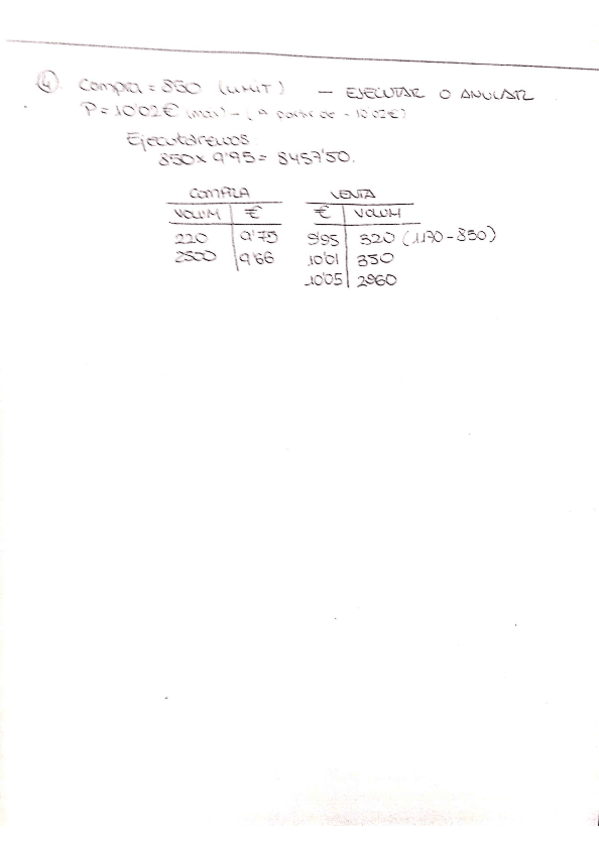 4) Compra = 850 (LIMIT) — EJECUTAR O ANULAR
P = 10'02€ (max) - (a partir de - 10'02€)
Ejecutaremos
850 x 9'95 = 8457'50.
COMPRA VENTA
VOLUM € € VOLUM
220 9'75 9'95 320 (1170 - 850)
2500 9'66 10'01 350
10'05 2960